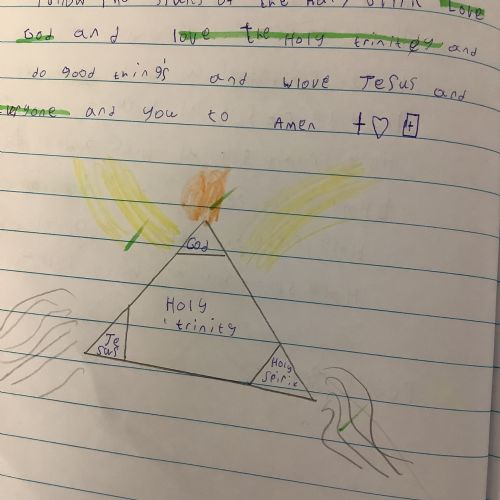 Follow the of the Holy Love
God and love the Holy trinitey and
do good thing's and wlove Jesus and
everyone and you to Amen
God
Holy
trinity
Je
sus
Holy
spirit